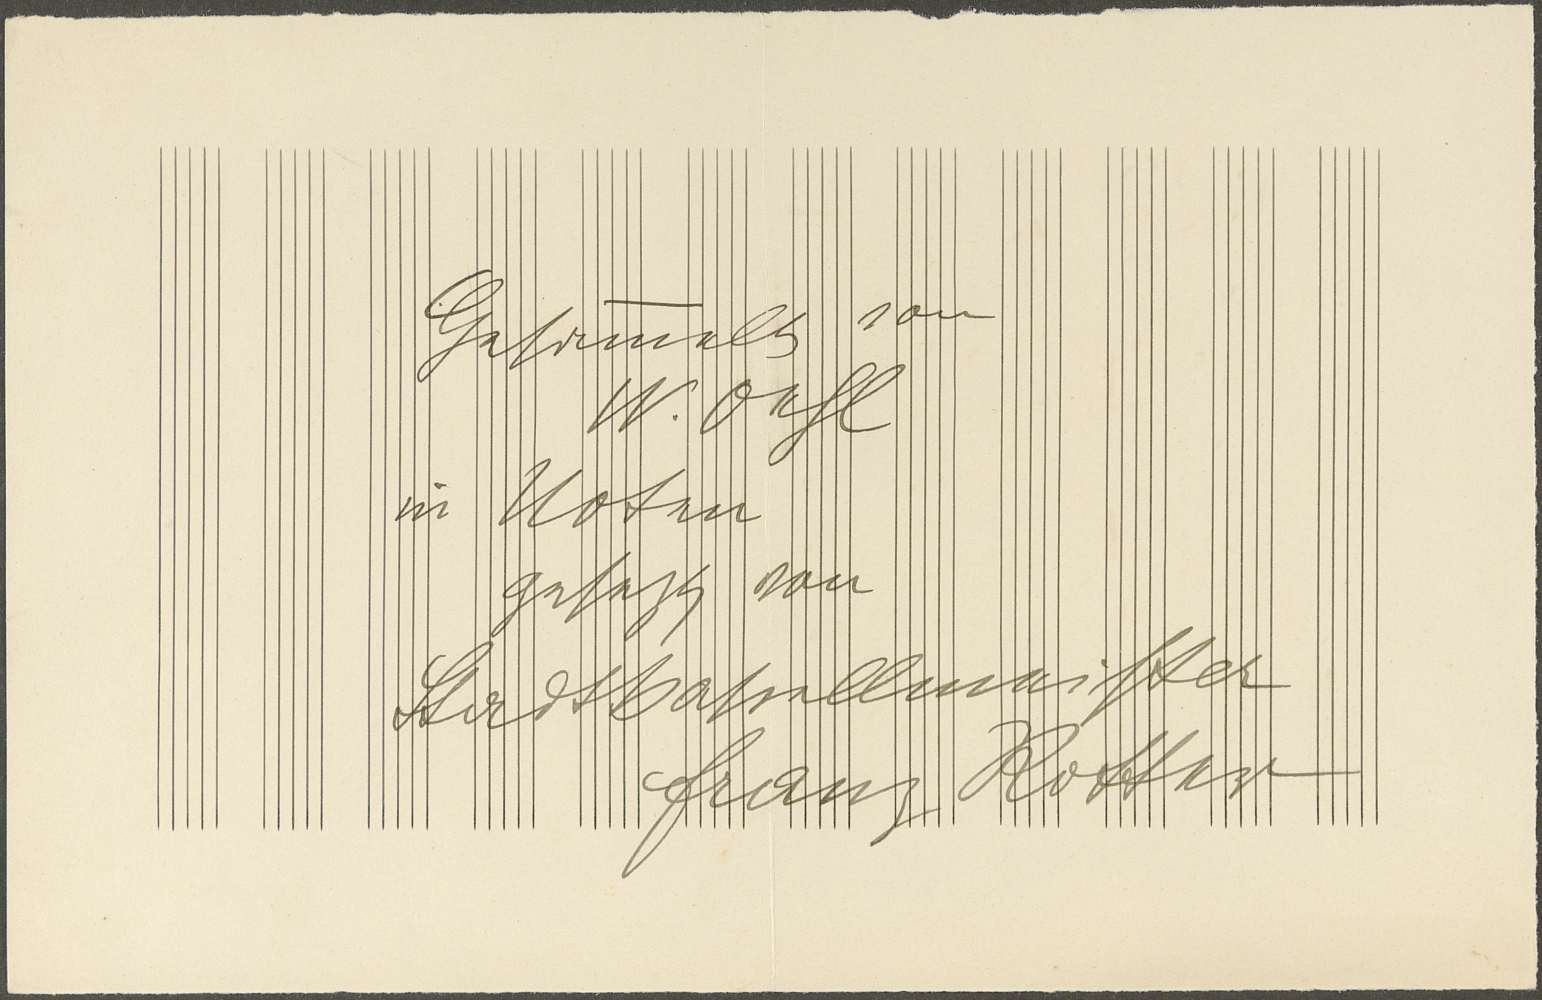 Gesam̅elt von
W. Oehl
in Noten
gesetzt von
Stadtkapellmeister
Franz Rotter